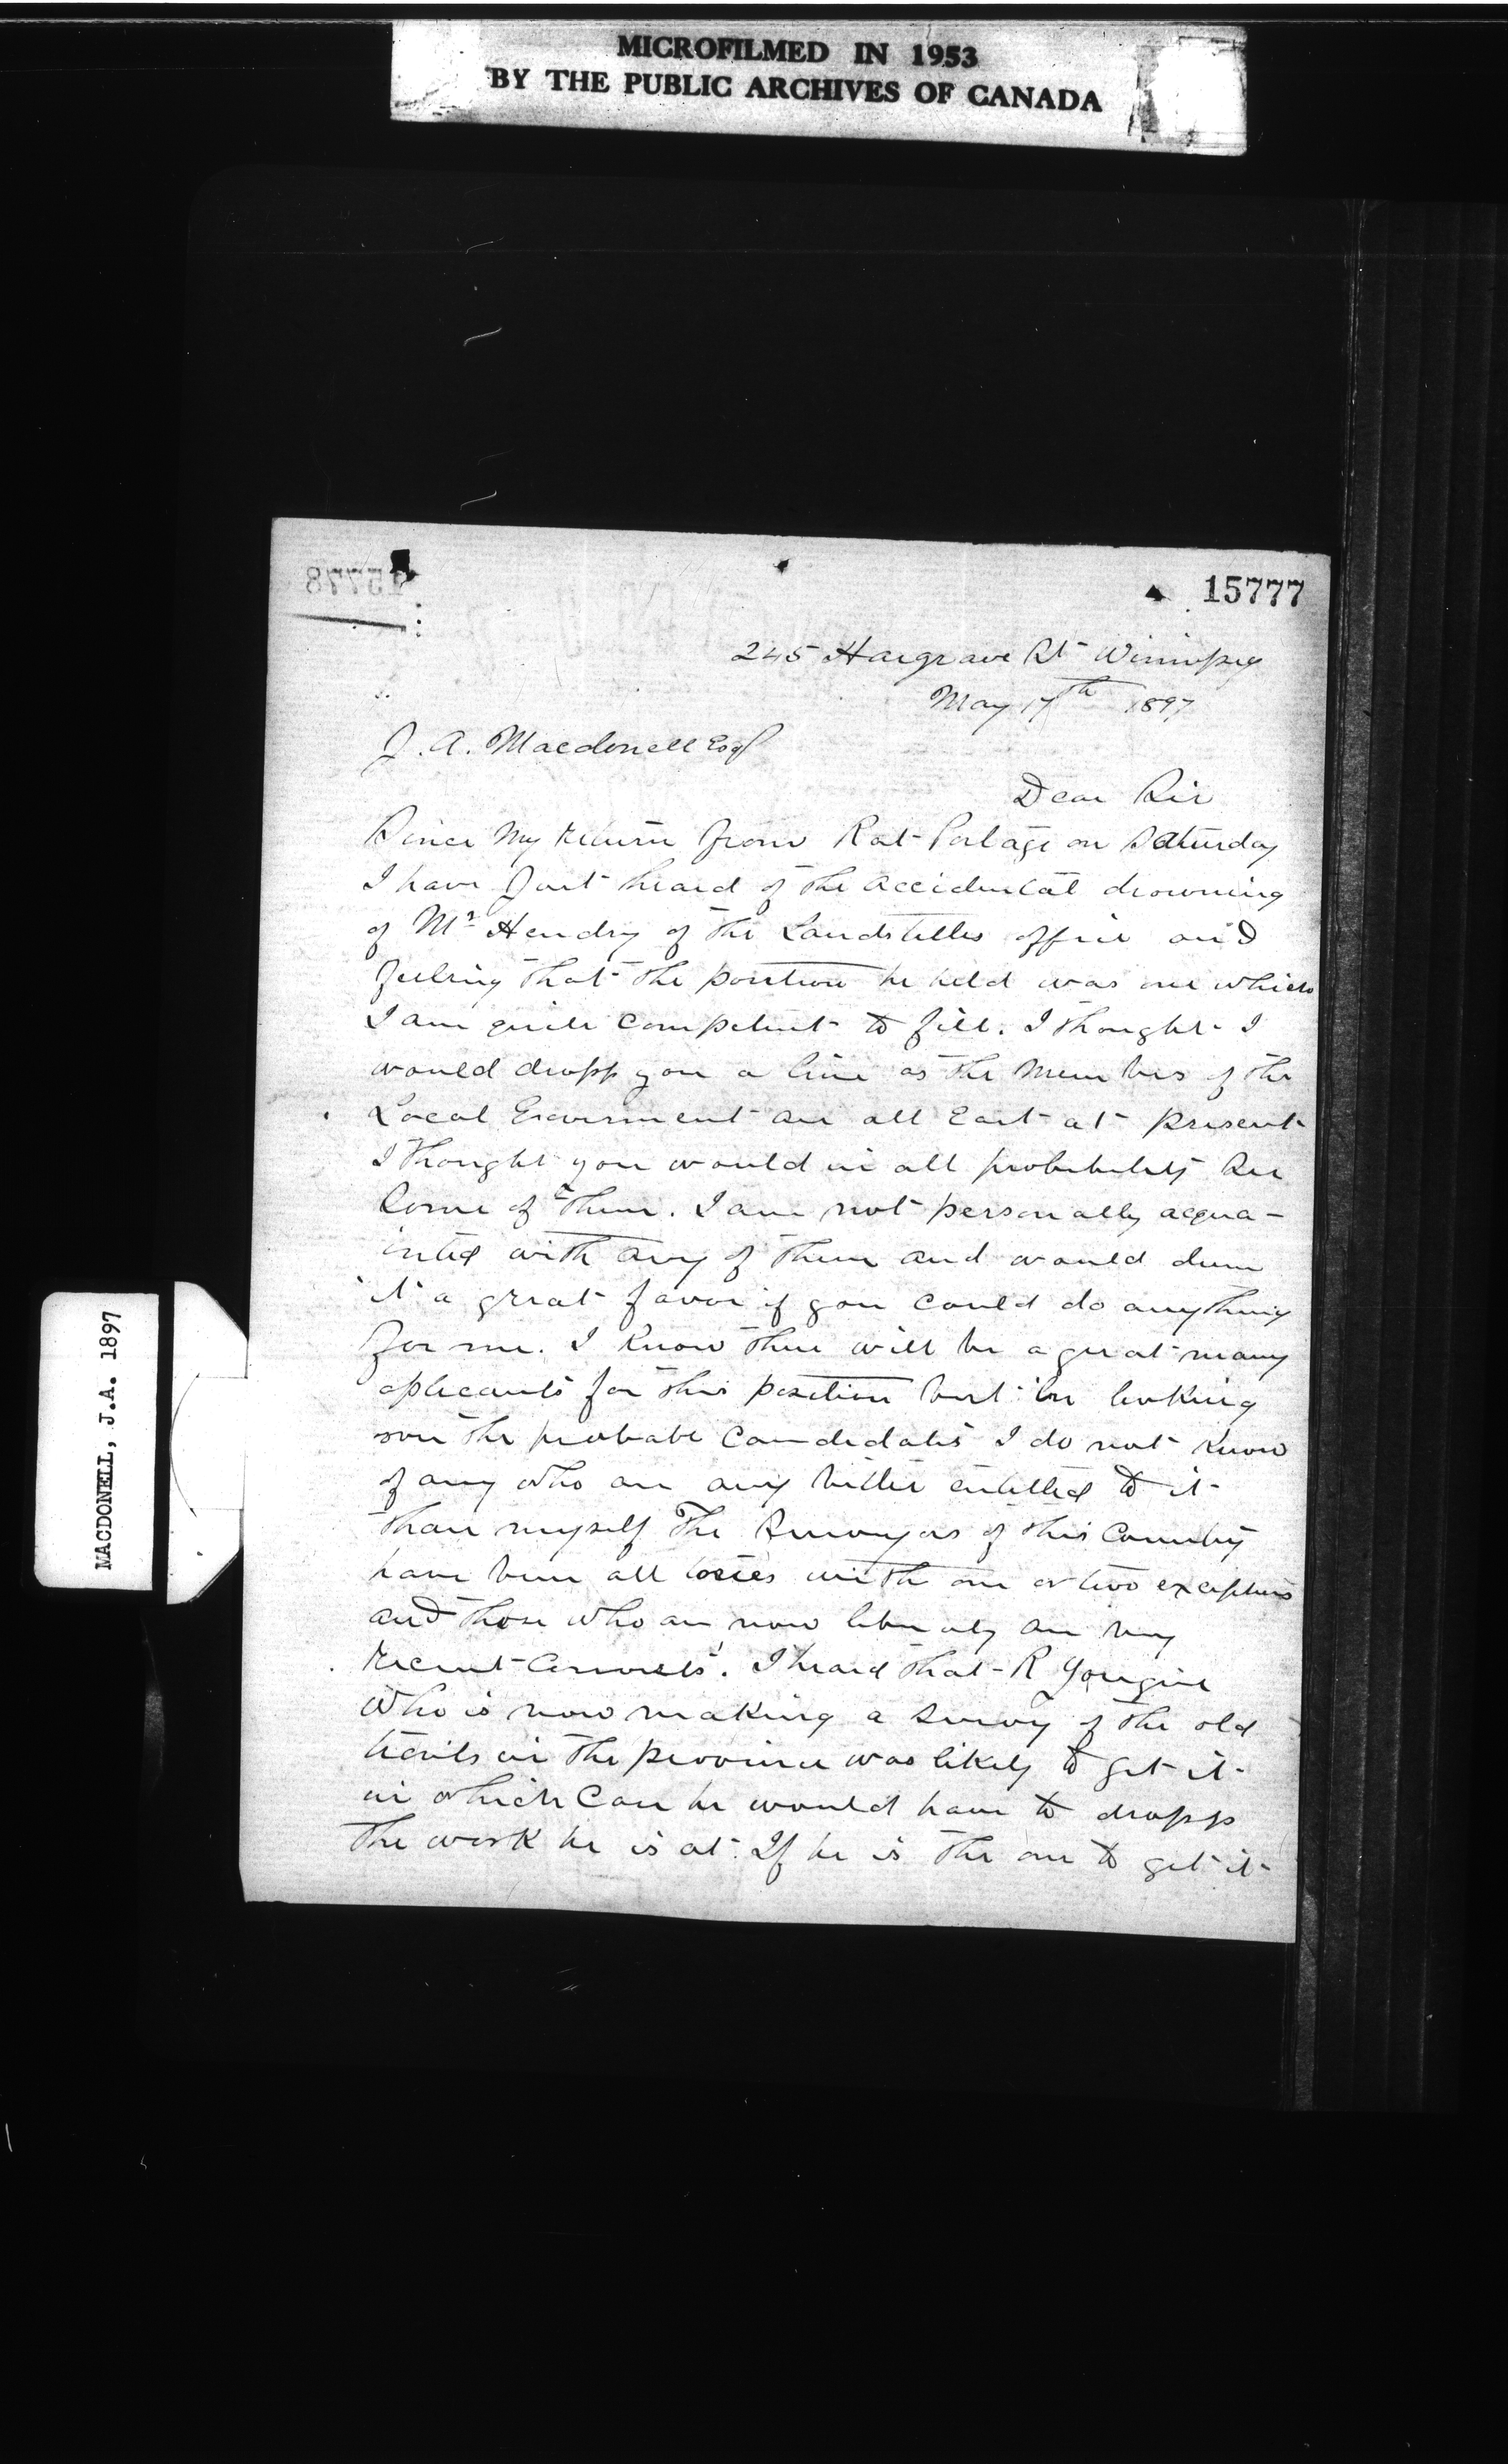 MICROFILMED IN 1953
BY THE PUBLIC ARCHIVES OF CANADA
15778
15777
245 Hargrave St Winnipeg
May 17th 1897
J. A. Macdonell Esq
Dear Sir
Since My return from Rat Portage on Saturday
I have Just heard of the accidental drowning
of Mr Hendry of the Landstitles office and
feeling that the position he held was one which
I am quite competent to fill. I thought I
would dropp you a line as the Members of the
Local Government are all East at present
I thought you would in all probibility see
some of them. I am not personally acqua-
inted with any of them and would deem
it a great favor if you could do anything
for me. I know there will be a great many
aplicants for this position but in looking
over the probable Candidates I do not know
of any who are any better entitled to it
than myself The Surveyors of this Country
have been all tories with one or two exceptions
and those who are now liberals are very
recent converts. I heard that R
who is now making a survey of the old
trails in the province was likely to get it
in which Case he would have to dropp
the work he is at. If he is the one to get it
MACDONELL, J.A. 1897